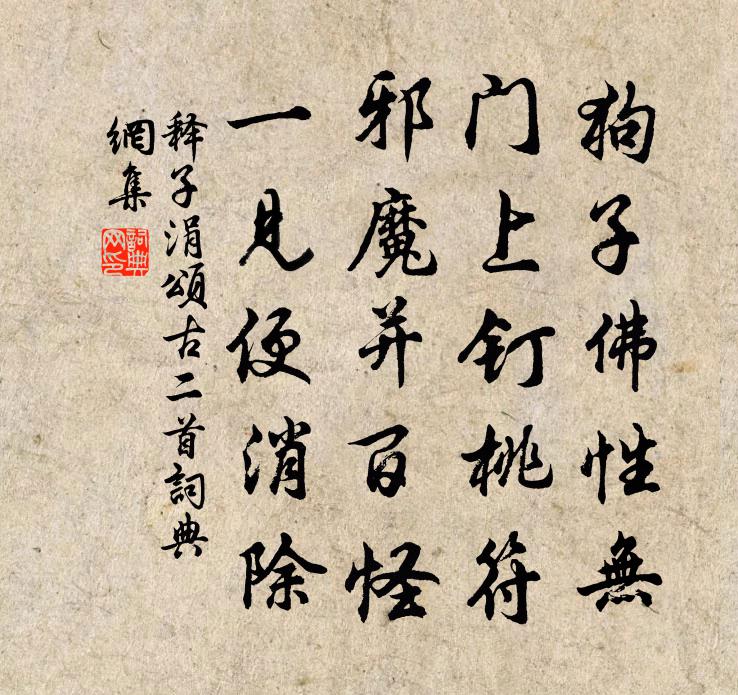 狗子佛性無
门上钉桃符
邪魔并百怪
一見便消除
释子涓頌古二首詞典
網集
詞典
网印